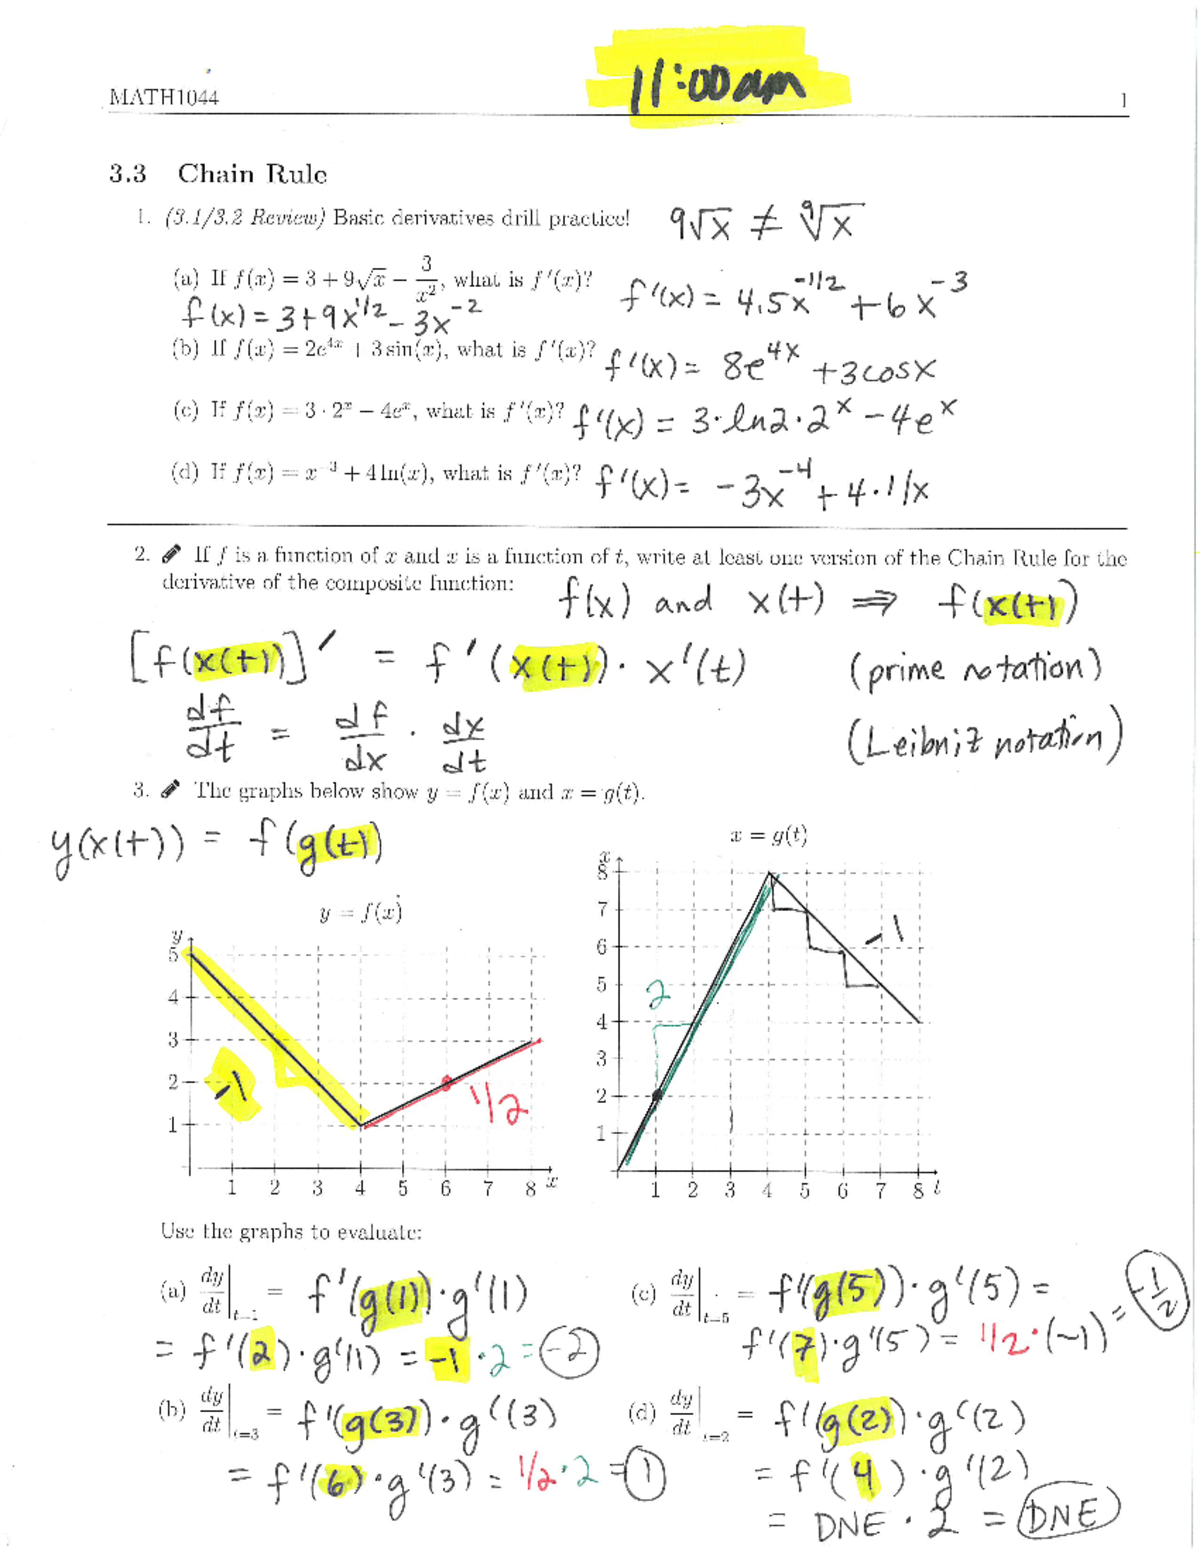 11:00am
MATH1044 1
3.3 Chain Rule
1. (3.1/3.2 Review) Basic derivatives drill practice! 9√x ≠ ⁹√x
(a) If f(x) = 3 + 9√x − 3/x², what is f′(x)? f'(x) = 4.5x^-1/2 + 6x^-3
f(x) = 3+9x^1/2 - 3x^-2
(b) If f(x) = 2e^4x + 3 sin(x), what is f′(x)? f'(x) = 8e^4x + 3cosx
(c) If f(x) = 3 · 2^x − 4e^x, what is f′(x)? f'(x) = 3·ln2·2^x - 4e^x
(d) If f(x) = x^−3 + 4 ln(x), what is f′(x)? f'(x) = -3x^-4 + 4·1/x
2. If f is a function of x and x is a function of t, write at least one version of the Chain Rule for the
derivative of the composite function: f(x) and x(t) ⇒ f(x(t))
[f(x(t))]' = f'(x(t))·x'(t) (prime notation)
df/dt = df/dx · dx/dt (Leibniz notation)
3. The graphs below show y = f(x) and x = g(t).
y(x(t)) = f(g(t))
y = f(x)
y
5
4
3
2
1
1 2 3 4 5 6 7 8 x
-1
1/2
x = g(t)
x
8
7
6
5
4
3
2
1
1 2 3 4 5 6 7 8 t
2
-1
Use the graphs to evaluate:
(a) dy/dt|t=1 = f'(g(1))·g'(1)
= f'(2)·g'(1) = -1·2 = -2
(b) dy/dt|t=3 = f'(g(3))·g'(3)
= f'(6)·g'(3) = 1/2·2 = 1
(c) dy/dt|t=5 = f'(g(5))·g'(5) =
f'(7)·g'(5) = 1/2·(-1) = -1/2
(d) dy/dt|t=2 = f'(g(2))·g'(2)
= f'(4)·g'(2)
= DNE · 2 = DNE